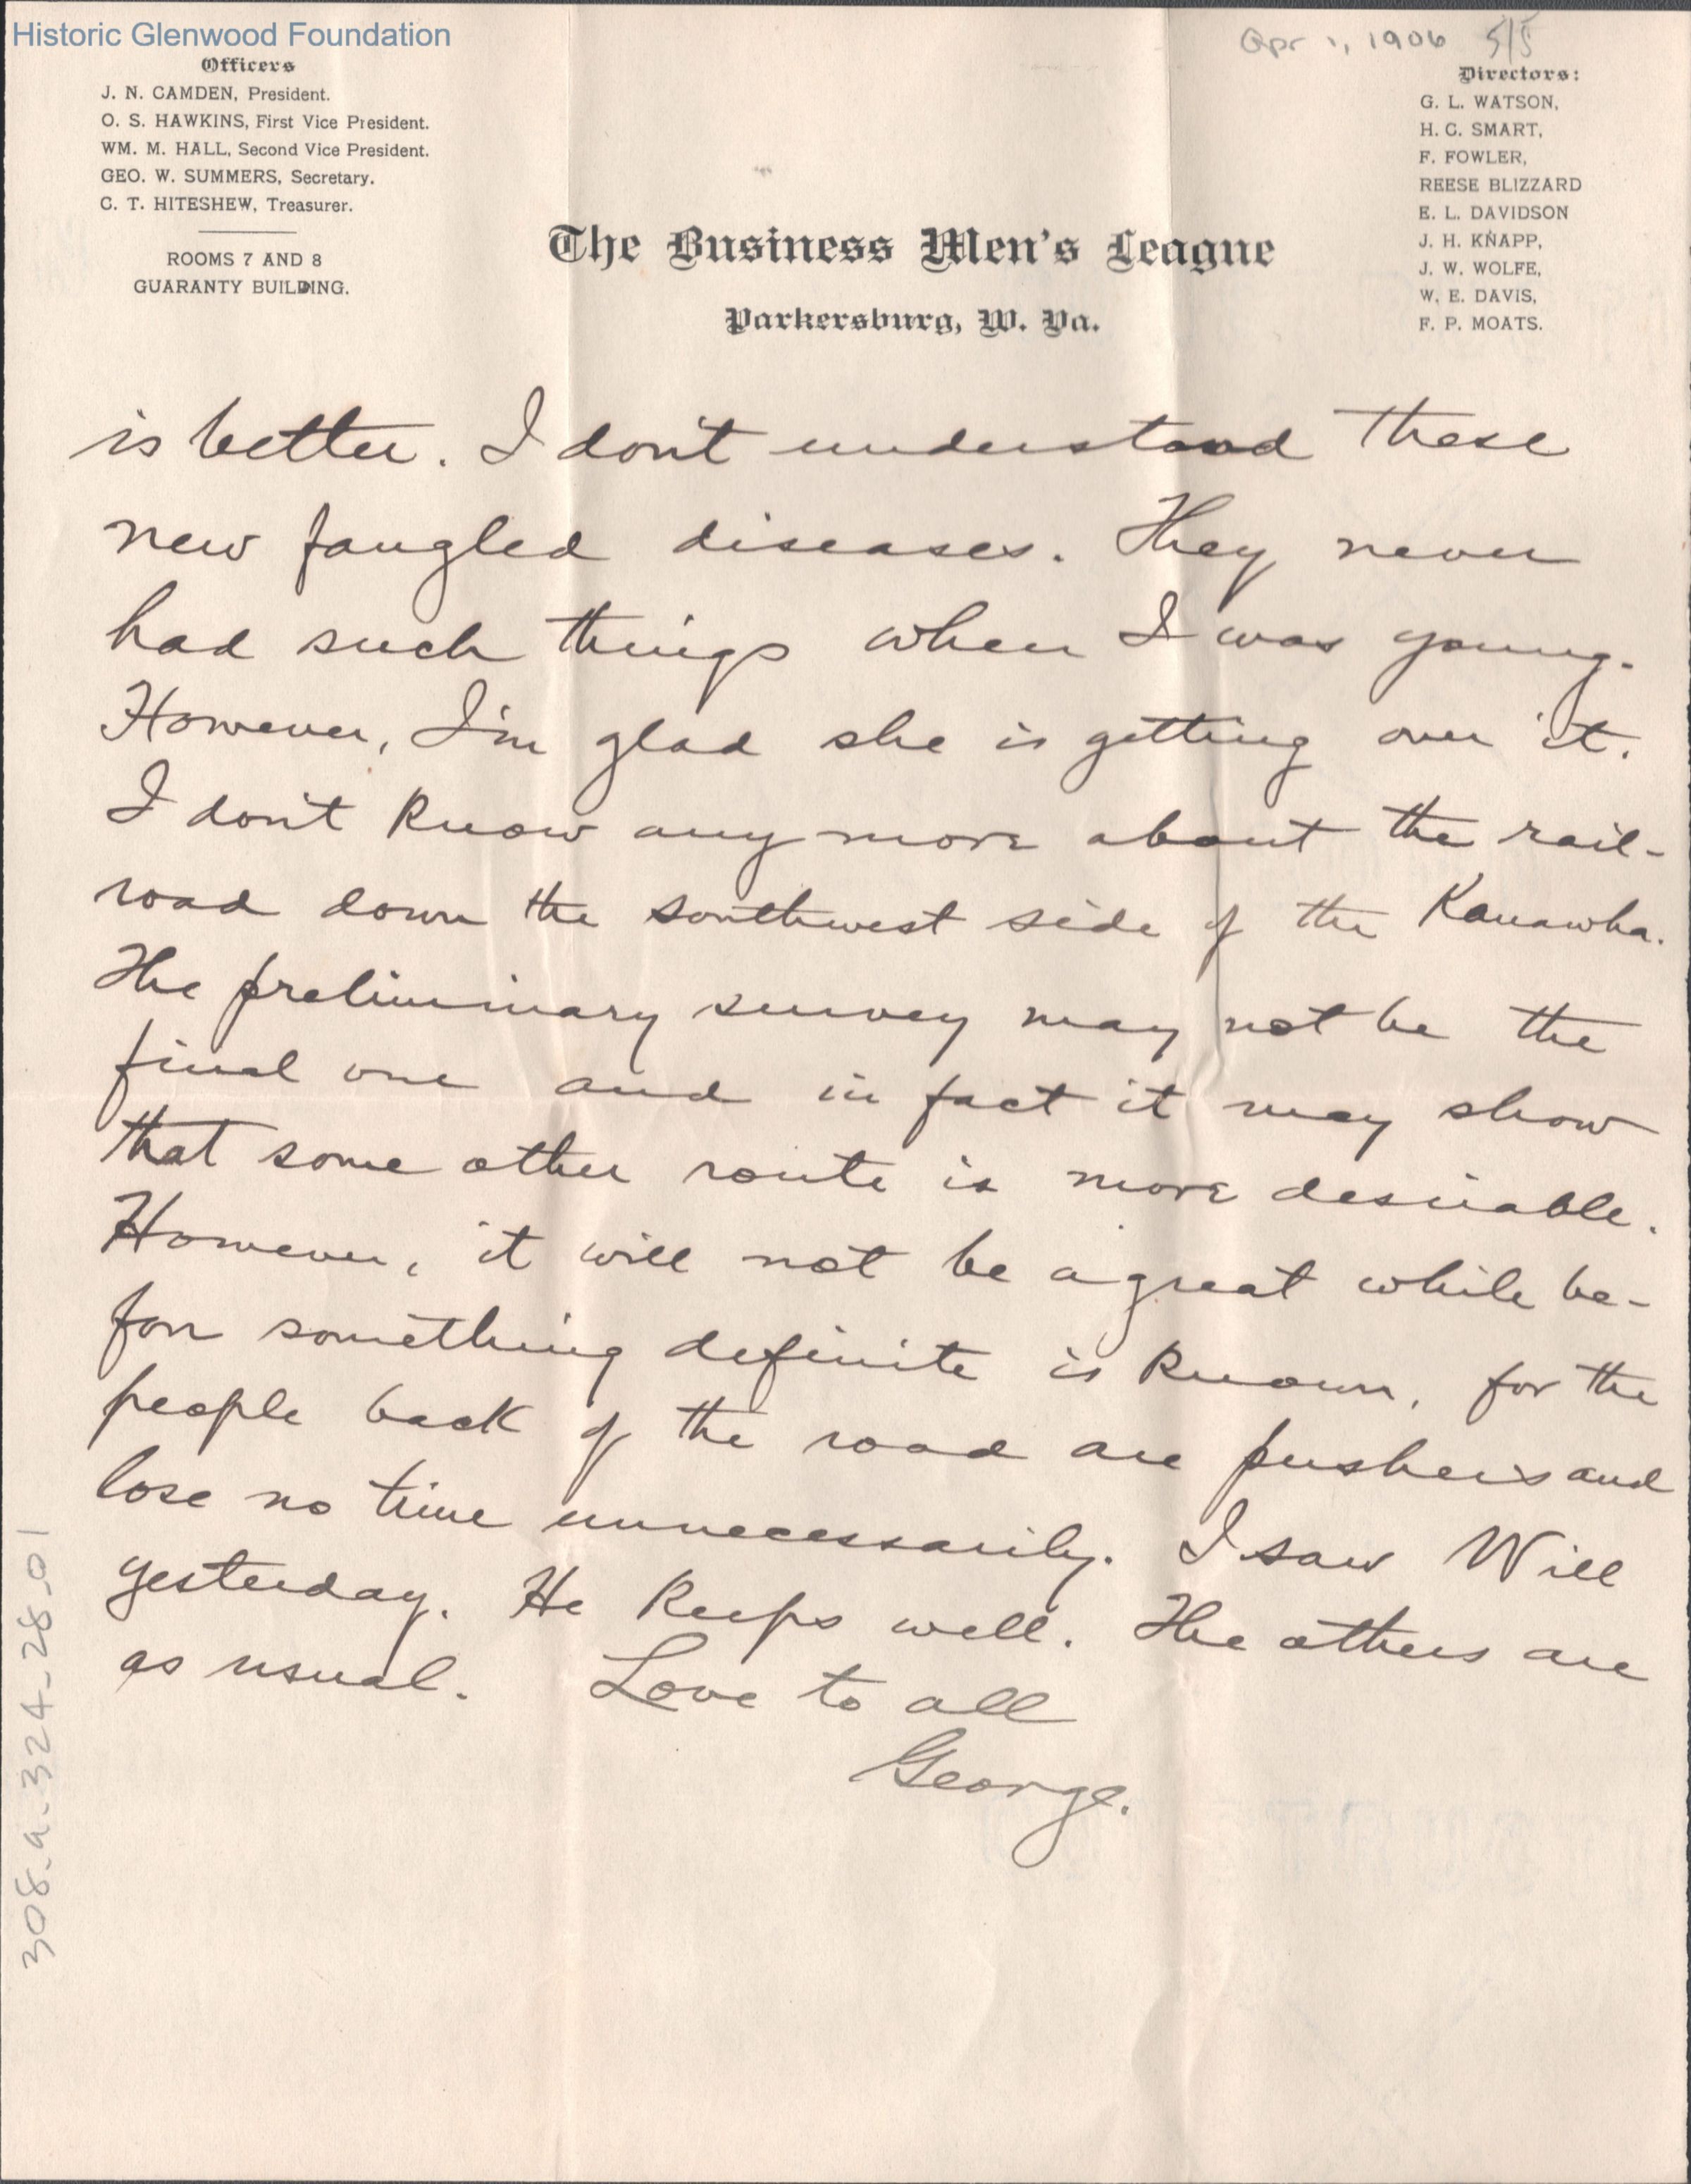 Historic Glenwood Foundation
Apr 1, 1906 5/5
Officers
J. N. CAMDEN, President.
O. S. HAWKINS, First Vice President.
WM. M. HALL, Second Vice President.
GEO. W. SUMMERS, Secretary.
C. T. HITESHEW, Treasurer.
ROOMS 7 AND 8
GUARANTY BUILDING.
Directors:
G. L. WATSON,
H. C. SMART,
F. FOWLER,
REESE BLIZZARD
E. L. DAVIDSON
J. H. KNAPP,
J. W. WOLFE,
W. E. DAVIS,
F. P. MOATS.
The Business Men's League
Parkersburg, W. Va.
is better. I don't understand these
new fangled diseases. They never
had such things when I was young.
However, I'm glad she is getting over it.
I don't know any more about the rail-
road down the southwest side of the Kanawha.
The preliminary survey may not be the
final one and in fact it may show
that some other route is more desirable.
However, it will not be a great while be-
fore something definite is known, for the
people back of the road are pushers and
lose no time unnecessarily. I saw Will
yesterday. He keeps well. The others are
as usual. Love to all
George.
308.a.324-28.01